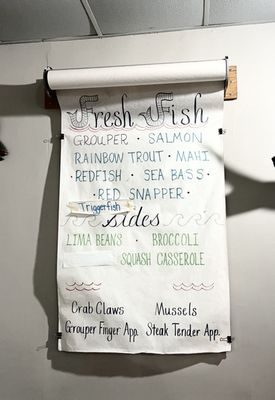 Fresh Fish
GROUPER · SALMON
RAINBOW TROUT · MAHI
· REDFISH · SEA BASS ·
· RED SNAPPER ·
Triggerfish
sides
LIMA BEANS · BROCCOLI
SQUASH CASSEROLE
Crab Claws Mussels
Grouper Finger App. Steak Tender App.